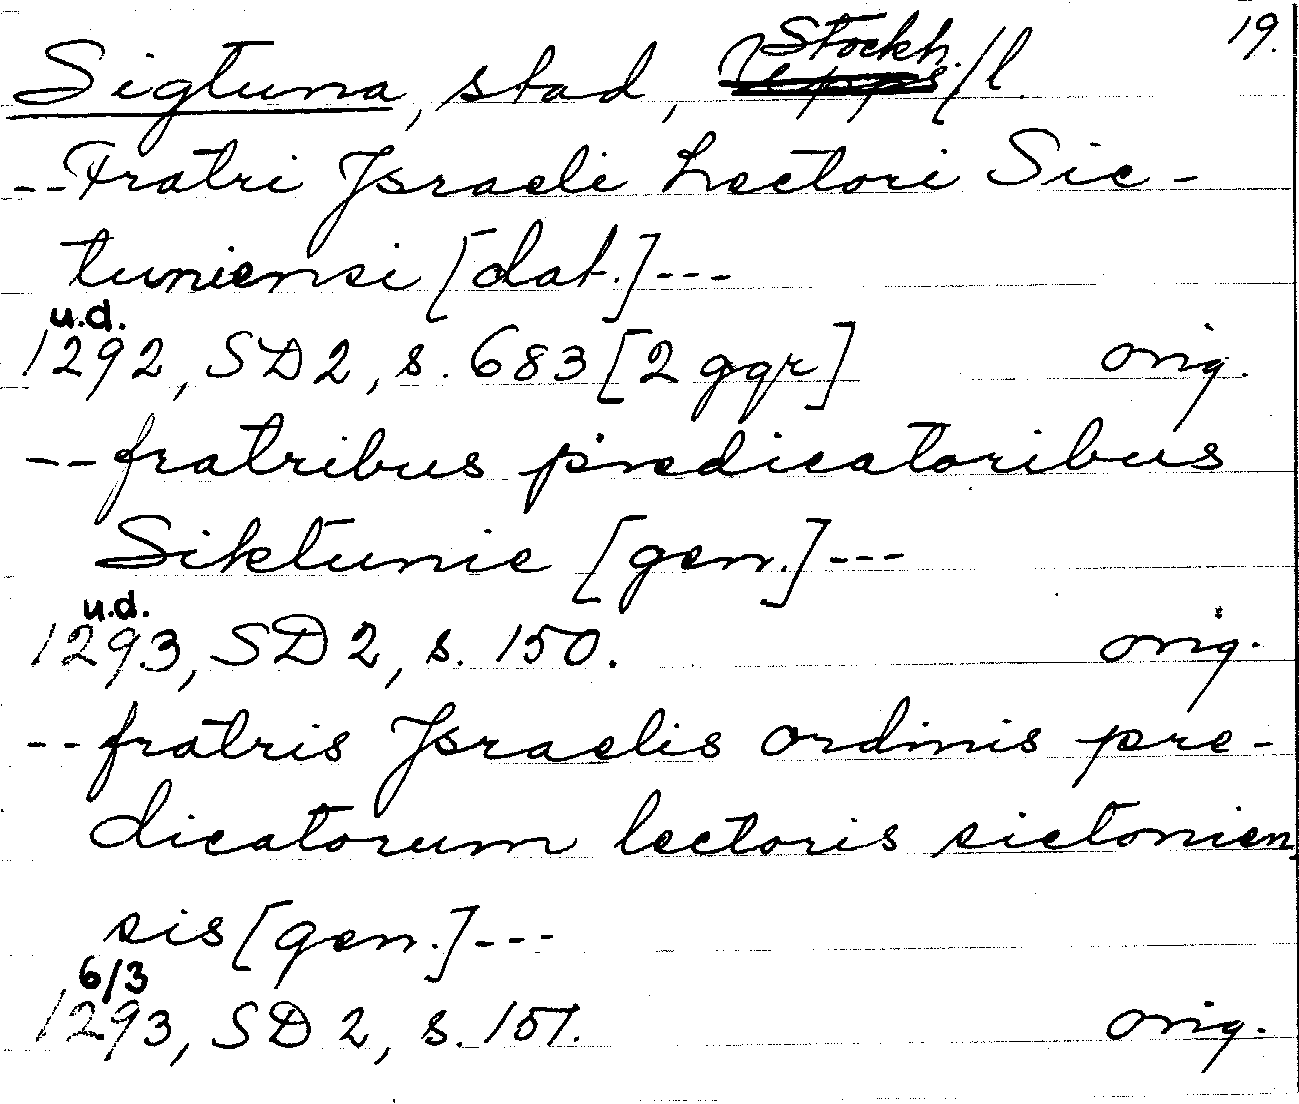 19.
Sigtuna, stad, Stockh./l.
--Fratri Jsraeli Lectori Sic-
tuniensi [dat.]---
u.d.
1292, SD2, s. 683 [2 ggr] orig.
--fratribus predicatoribus
Siktunie [gen.]---
u.d.
1293, SD2, s. 150. orig.
--fratris Jsraelis ordinis pre-
dicatorum lectoris sictonien
sis [gen.]---
6/3
1293, SD2, s. 151. orig.